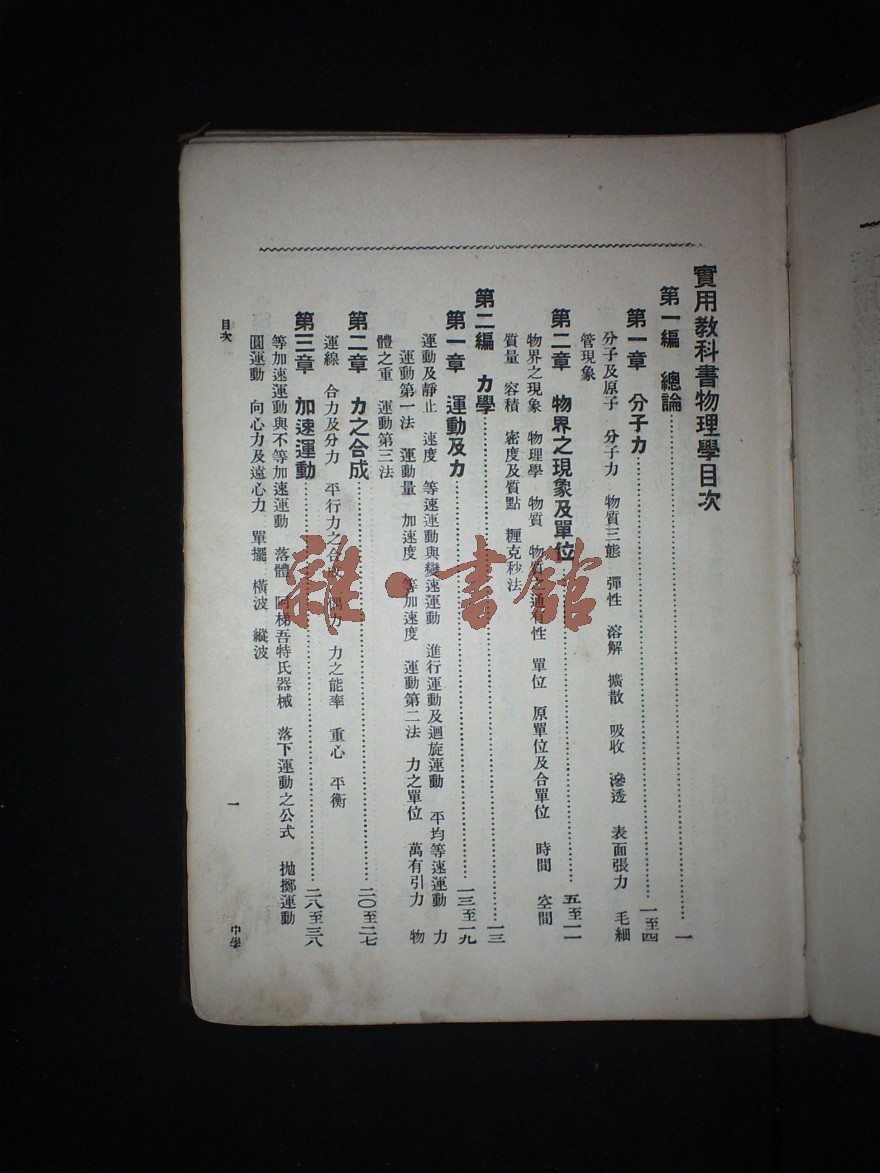 實用教科書物理學目次
第一編 總論………一
第一章 分子力………一至四
分子及原子 分子力 物質三態 彈性 溶解 擴散 吸收 滲透 表面張力 毛細
管現象
第二章 物界之現象及單位………五至一一
物界之現象 物理學 物質 物質之通有性 單位 原單位及合單位 時間 空間
質量 容積 密度及質點 糎克秒法
第二編 力學………一三
第一章 運動及力………一三至一九
運動及靜止 速度 等速運動與變速運動 進行運動及迴旋運動 平均等速運動 力
運動第一法 運動量 加速度 等加速度 運動第二法 力之單位 萬有引力 物
體之重 運動第三法
第二章 力之合成………二〇至二七
運線 合力及分力 平行力之合成 偶力 力之能率 重心 平衡
第三章 加速運動………二八至三八
等加速運動與不等加速運動 落體 阿梯吾特氏器械 落下運動之公式 拋擲運動
圓運動 向心力及遠心力 單擺 橫波 縱波
目次
一
中學
雜·書館